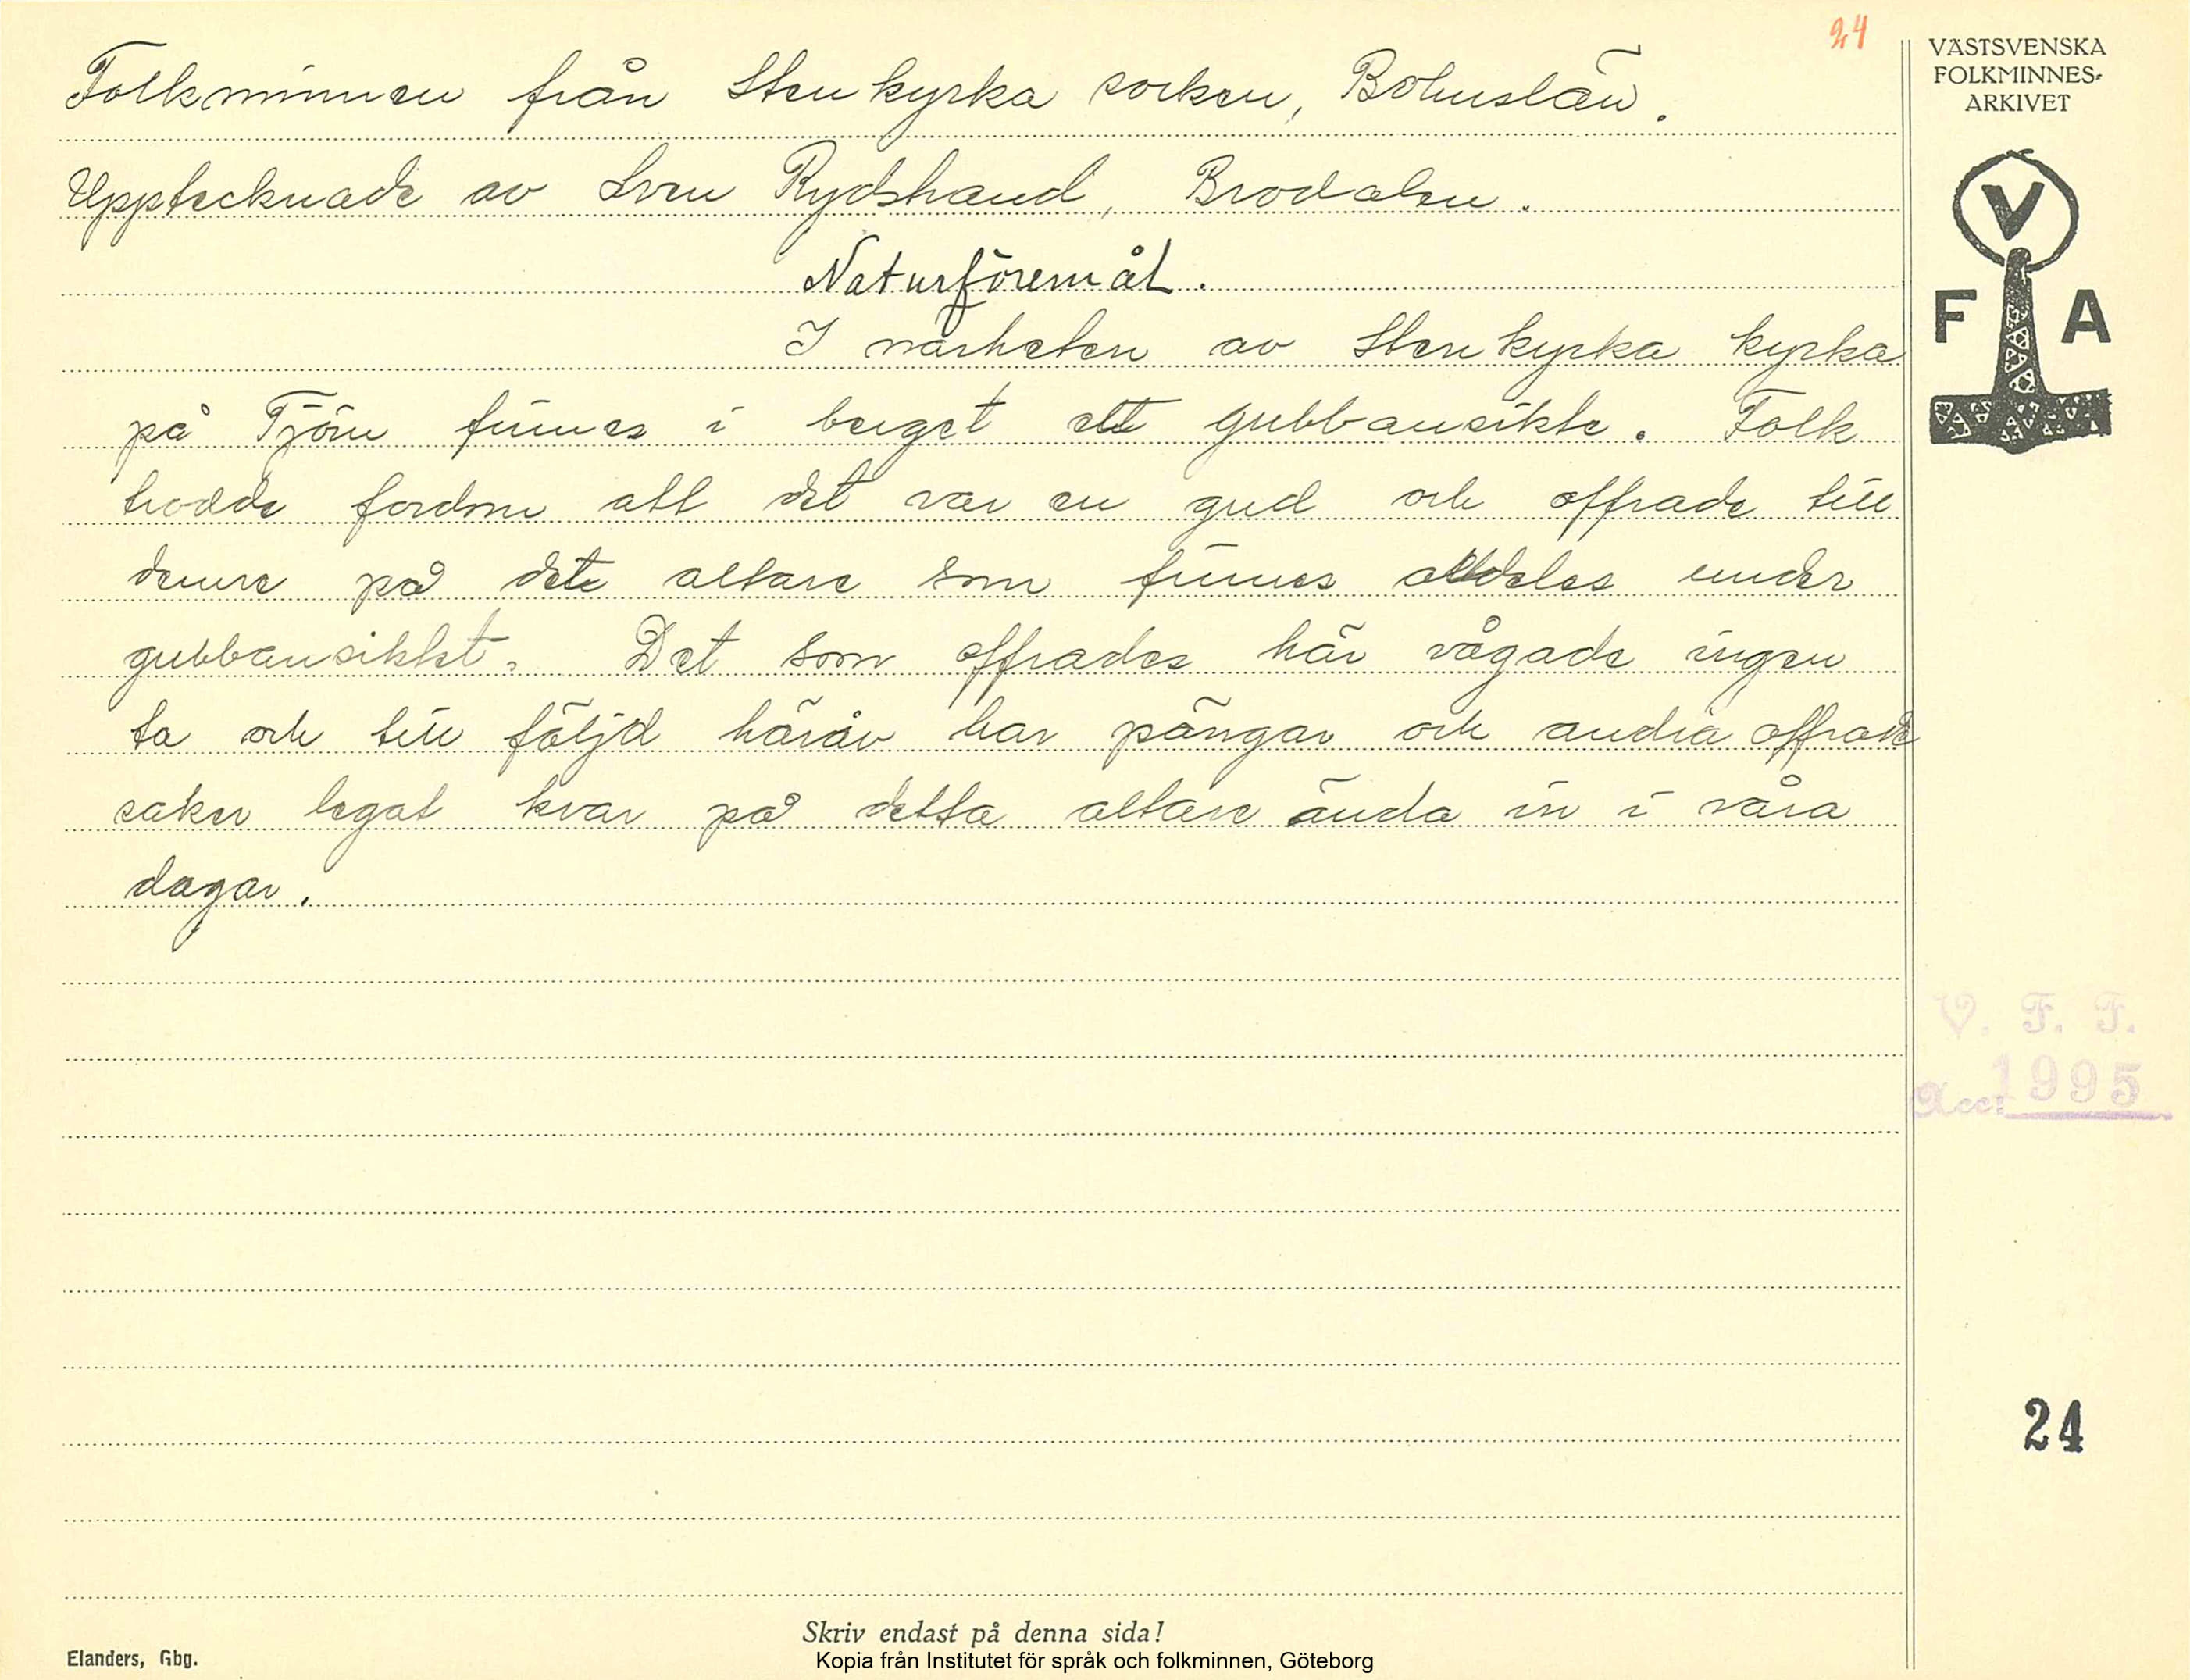 24
Folkminnen från Stenkyrka socken, Bohuslän.
Upptecknade av Sven Rydstrand, Brodalen.
Naturföremål.
I närheten av Stenkyrka kyrka
på Tjörn finnes i berget ett gubbansikte. Folk
trodde fordom att det var en gud och offrade till
denne på det altare som finnes alldeles under
gubbansiktet. Det som offrades här vågade ingen
ta och till följd härav har pängar och andra offrade
saker legat kvar på detta altare ända in i våra
dagar.
VÄSTSVENSKA
FOLKMINNES-
ARKIVET
V
F A
V. F. T.
Acc: 1995
24
Skriv endast på denna sida!
Elanders, Gbg.
Kopia från Institutet för språk och folkminnen, Göteborg